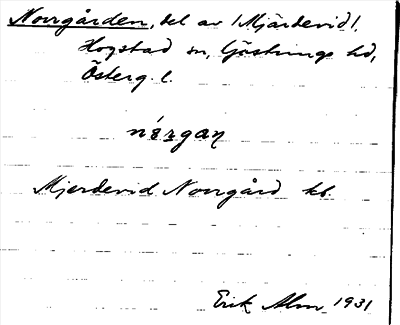 Norrgården, del av /Mjärdevid/.
Hogstad sn, Göstrings hd,
Österg. l.
Mjerdevid Norrgård kb.
Erik Alm 1931